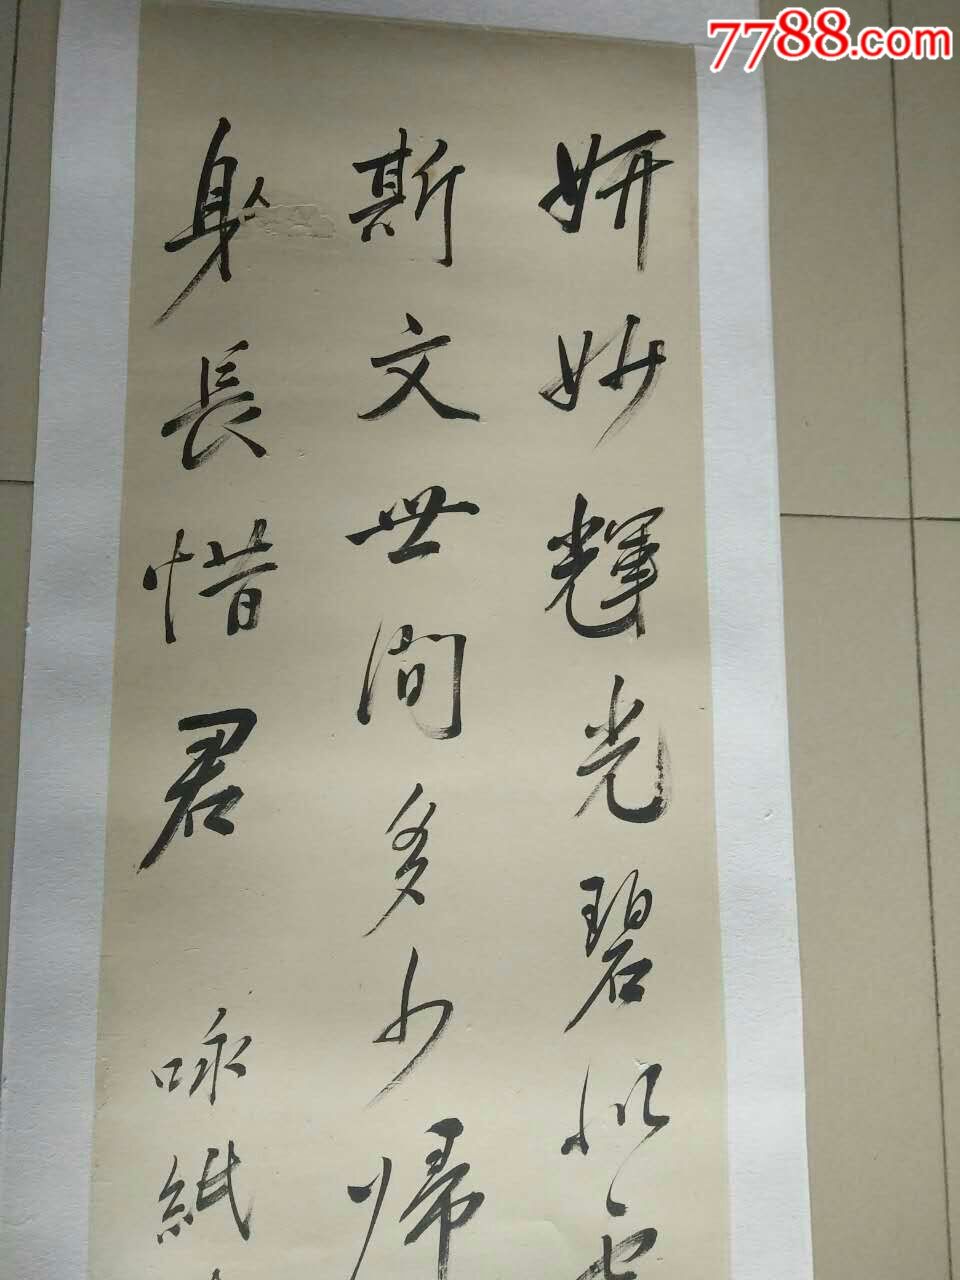 7788.com
妍妙輝光碧似
斯文世間多少帰
身長惜君
咏紙